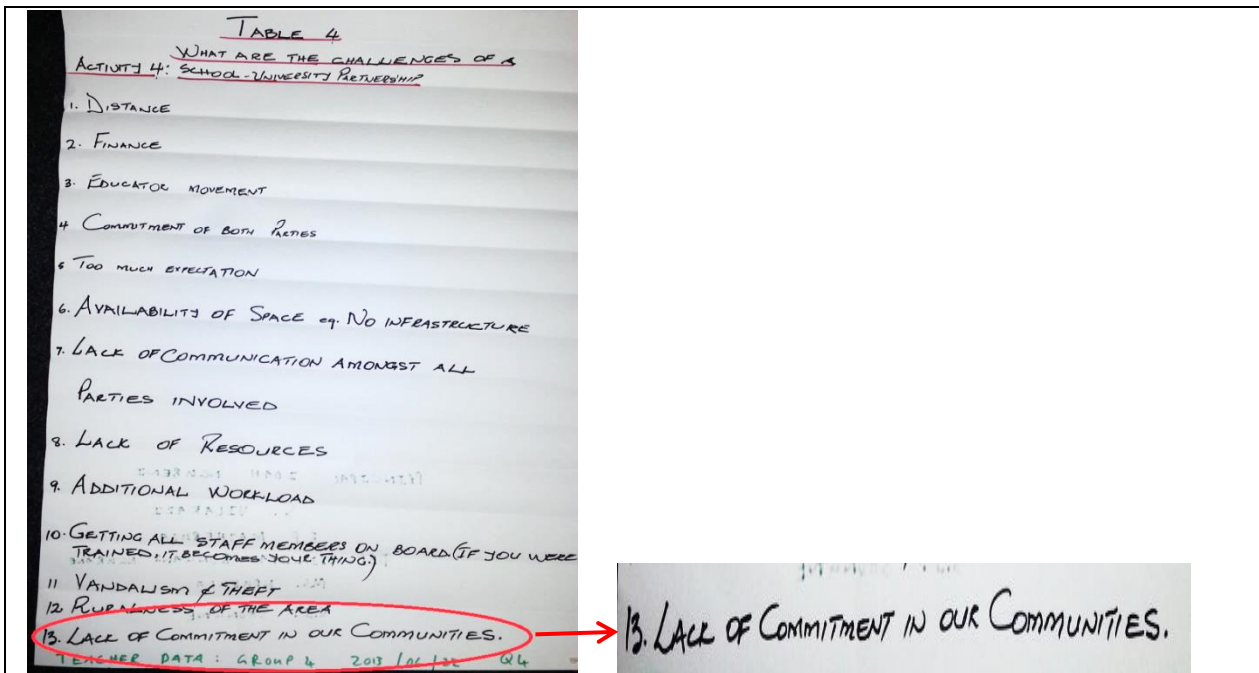 TABLE 4
WHAT ARE THE CHALLENGES OF A
ACTIVITY 4: SCHOOL-UNIVERSITY PARTNERSHIP
1. DISTANCE
2. FINANCE
3. EDUCATOR MOVEMENT
4 COMMITMENT OF BOTH PARTIES
5 TOO MUCH EXPECTATION
6. AVAILABILITY OF SPACE eg. NO INFRASTRUCTURE
7. LACK OF COMMUNICATION AMONGST ALL
PARTIES INVOLVED
8. LACK OF RESOURCES
9. ADDITIONAL WORKLOAD
10. GETTING ALL STAFF MEMBERS ON BOARD (IF YOU WERE
TRAINED, IT BECOMES YOUR THING.)
11 VANDALISM & THEFT
12 RURALNESS OF THE AREA
13. LACK OF COMMITMENT IN OUR COMMUNITIES.
TEACHER DATA: GROUP 4 2013 Q4
13. LACK OF COMMITMENT IN OUR COMMUNITIES.